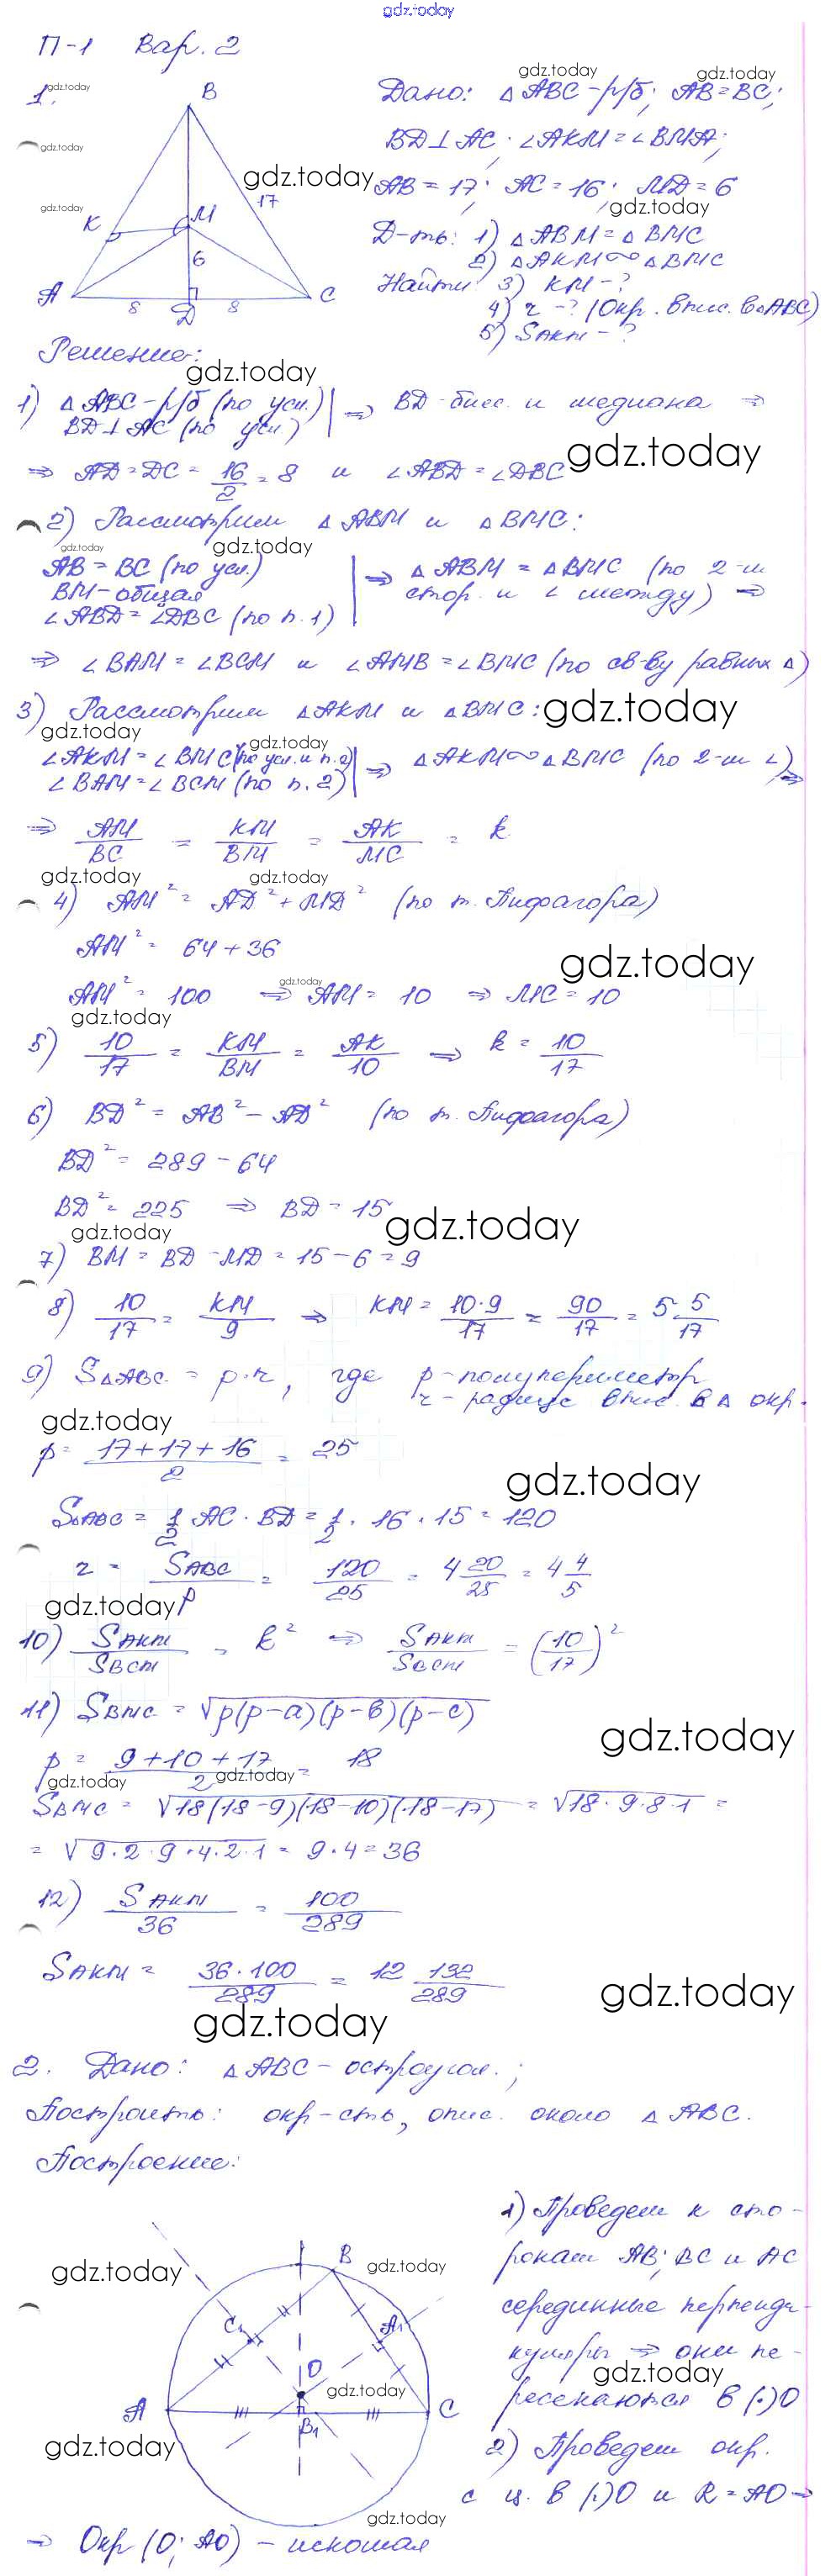 gdz.today
П-1 Вар. 2
1.
gdz.today
B
Дано: △ABC - р/б; AB=BC;
BD⊥AC; ∠AKM=∠BMA;
AB=17; AC=16; MD=6
Д-ть: 1) △ABM=△BMC
2) △AKM∾△BMC
Найти 3) KM-?
4) r-? (Окр. впис. в △ABC)
5) SAKM-?
K
M
17
6
A
8
D
8
C
Решение:
1) △ABC - р/б (по усл.) | ⇒ BD - бисс. и медиана ⇒
BD⊥AC (по усл)
⇒ AD=DC= 16/2 = 8 и ∠ABD=∠DBC
2) Рассмотрим △ABM и △BMC:
AB=BC (по усл.) | ⇒ △ABM=△BMC (по 2-м
BM-общая стор. и ∠ между) ⇒
∠ABD=∠DBC (по п.1)
⇒ ∠BAM=∠BCM и ∠AMB=∠BMC (по св-ву равных △)
3) Рассмотрим △AKM и △BMC:
∠AKM=∠BMC (по усл. и п.2) | ⇒ △AKM∾△BMC (по 2-м ∠) ⇒
∠BAM=∠BCM (по п.2)
⇒ AM/BC = KM/BM = AK/MC = k
4) AM² = AD²+MD² (по т. Пифагора)
AM² = 64+36
AM² = 100 ⇒ AM=10 ⇒ MC=10
5) 10/17 = KM/BM = AK/10 ⇒ k = 10/17
6) BD² = AB²-AD² (по т. Пифагора)
BD² = 289-64
BD² = 225 ⇒ BD=15
7) BM=BD-MD=15-6=9
8) 10/17 = KM/9 ⇒ KM = 10·9/17 = 90/17 = 5 5/17
9) S△ABC = p·r, где p-полупериметр
r-радиус впис. в △ окр.
p = 17+17+16/2 = 25
S△ABC = 1/2 · AC · BD = 1/2 · 16 · 15 = 120
r = SABC/p = 120/25 = 4 20/25 = 4 4/5
10) SAKM/SBCM = k² ⇒ SAKM/SBCM = (10/17)²
11) SBMC = √p(p-a)(p-b)(p-c)
p = 9+10+17/2 = 18
SBMC = √18(18-9)(18-10)(18-17) = √18·9·8·1 =
= √9·2·9·4·2·1 = 9·4=36
12) SAKM/36 = 100/289
SAKM = 36·100/289 = 12 132/289
2. Дано: △ABC - остроугол.;
Построить: окр-сть, опис. около △ABC.
Построение:
1) Проведем к сто-
ронам AB; BC и AC
серединные перпенди-
куляры ⇒ они пе-
ресекаются в (·)O
2) Проведем окр.
с ц. в (·)O и R=AO ⇒
B
C₁
A₁
O
A
B₁
C
⇒ Окр (O; AO) - искомая